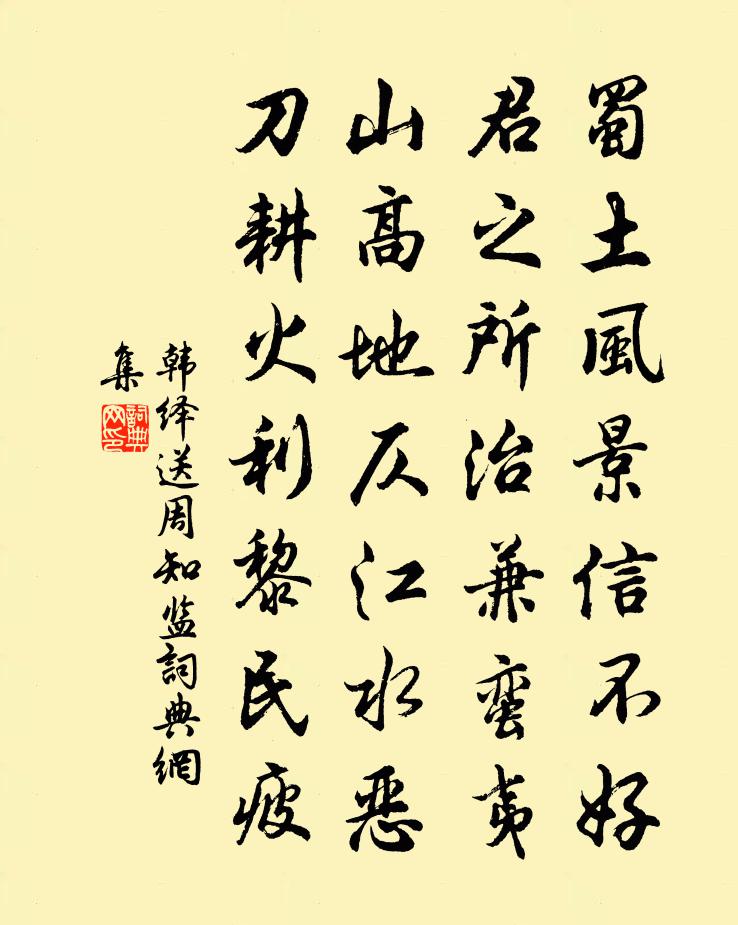 蜀土風景信不好
君之所治兼蛮夷
山高地仄江水恶
刀耕火利黎民疲
韩绎送周知监詞典網
集
詞典
网印